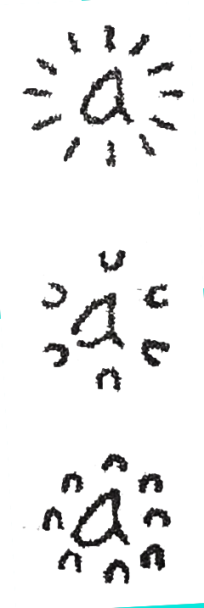 a
a
a